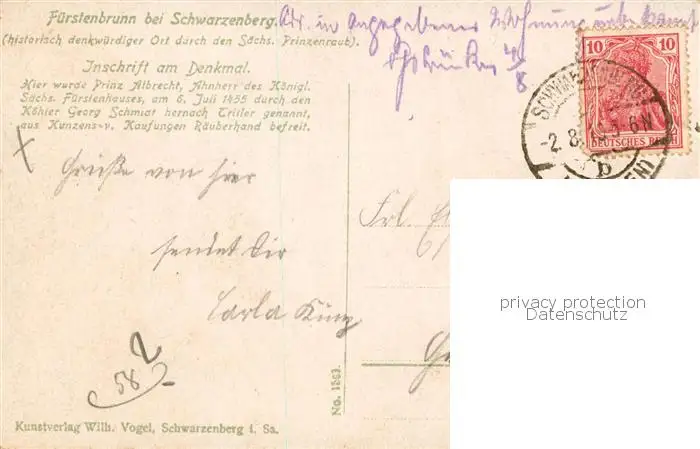 Fürstenbrunn bei Schwarzenberg.
(historisch denkwürdiger Ort durch den Sächs. Prinzenraub).
Inschrift am Denkmal.
Hier wurde Prinz Albrecht, Ahnherr des Königl.
Sächs. Fürstenhauses, am 6. Juli 1455 durch den
Köhler Georg Schmidt hernach Triller genannt,
aus Kunzens v. Kaufungen Räuberhand befreit.
Adr. in angegebener Wohnung unbekannt
4/8
10 10
DEUTSCHES REICH
SCHWARZENBERG
-2.8. 5-6N
b
Grüße von hier
sendet Dir
Carla
Frl.
2
58
No. 1563.
Kunstverlag Wilh. Vogel, Schwarzenberg i. Sa.
privacy protection
Datenschutz